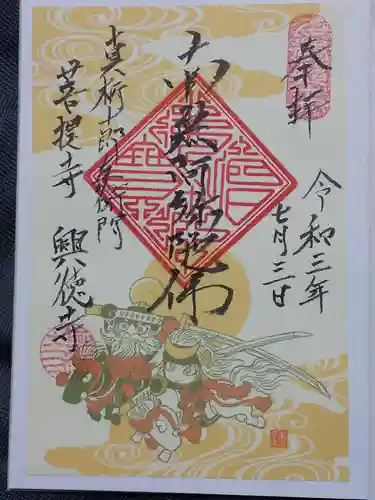 奉拝
令和三年
七月三日
南無阿弥陀仏
真柄十郎左衛門
菩提寺 興徳寺